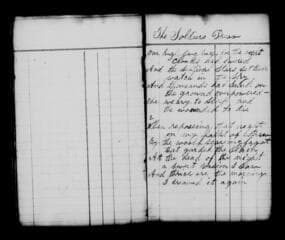 The Soldiers Dream
Our bugles sang truce for the night
Clouds had lowered
And the sentinel stars set their
watch in the sky
And thousands had sunk on
the ground overpowered
The weary to sleep and
the wounded to die
2
When reposing that night
on my pallet of straw
By the wolf scaring fagot
that guarded the slain
At the dead of the night
a sweet vision I saw
And thrice ere the morning
I dreamed it again